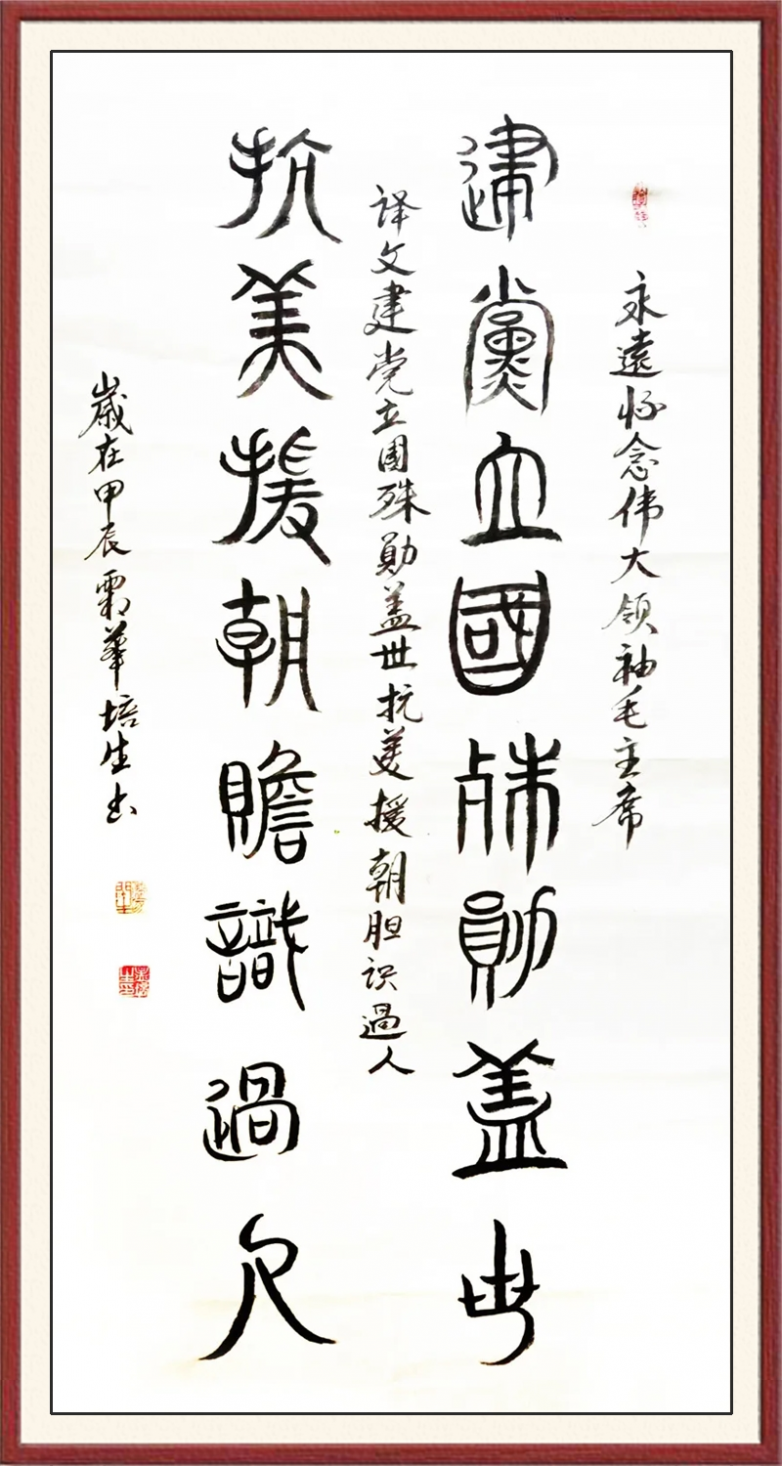 永遠怀念伟大领袖毛主席
建黨立國殊勛蓋世
译文建党立國殊勛盖世抗美援朝胆识過人
抗美援朝瞻識過人
歲在甲辰霜華培生书